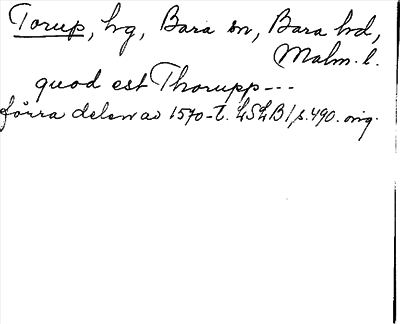 Torup, hg, Bara sn, Bara hd,
Malm. l.
quod est Thorupp---
förra delen av 1570-t. LSLB 1 p. 490. orig.